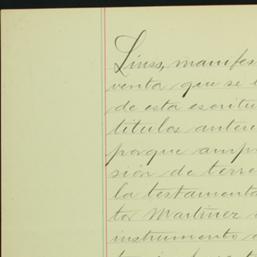 Liuss, manifes
venta que se
de esta escritu
titulos anteri
porque ampr
sión de terre
la testamenta
tor Martinez
instrumento